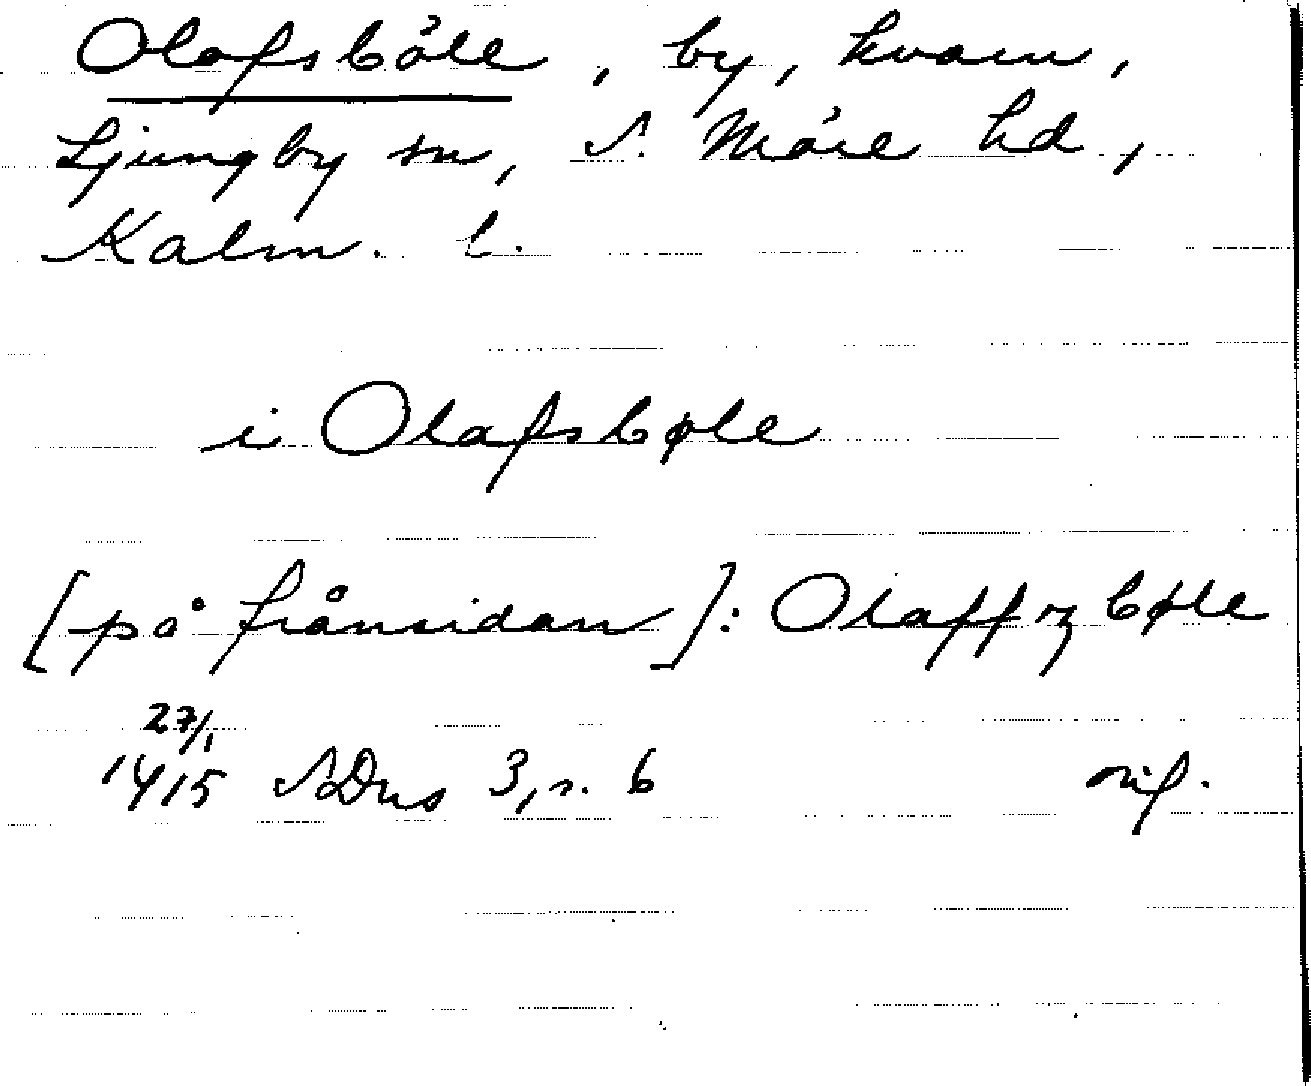 Olafsböle, by, kvarn,
Ljungby sn, S. Möre hd,
Kalm. l.
i Olafsbøle
[på frånsidan]: Olaffzbøle
27/1
1415 SDns 3, s. 6 orig.